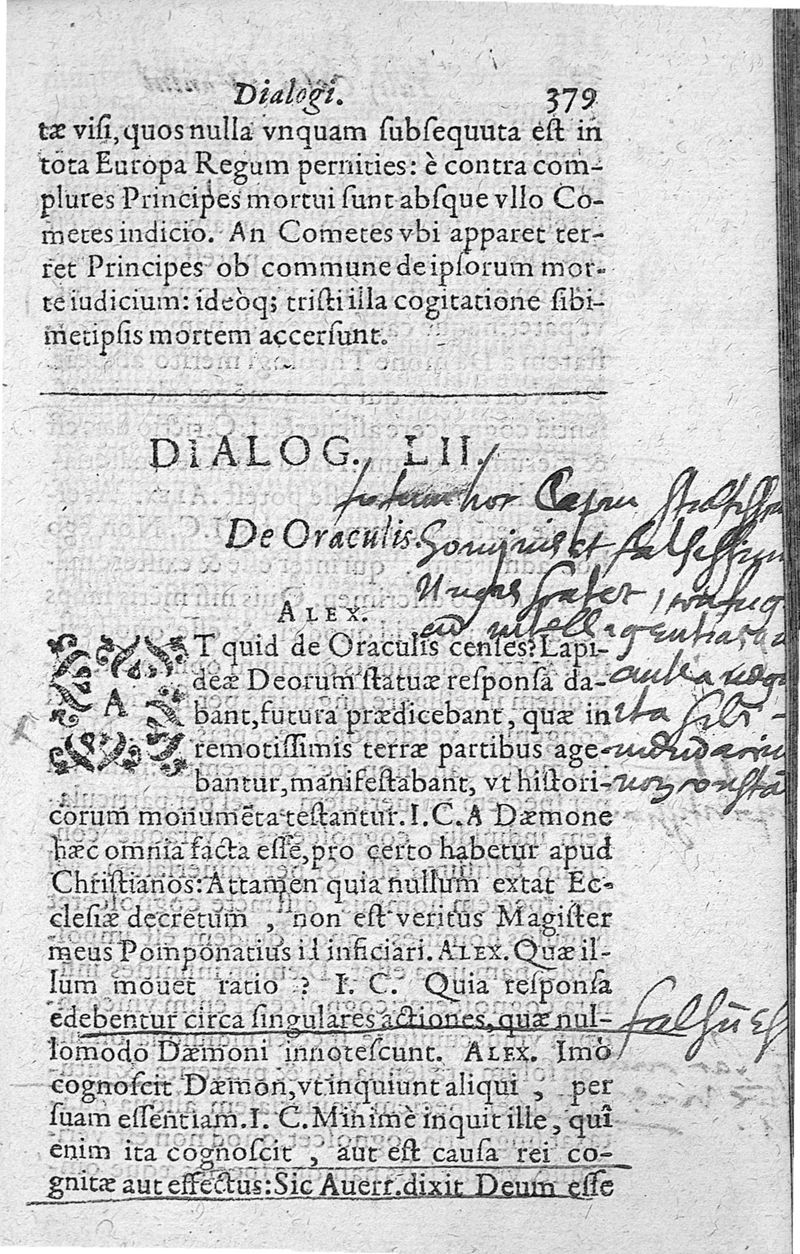 Dialogi. 379
tæ visi, quos nulla vnquam subsequuta est in
tota Europa Regum pernities: è contra com-
plures Principes mortui sunt absque vllo Co-
metes indicio. An Cometes vbi apparet ter-
ret Principes ob commune de ipsorum mor-
te iudicium: ideòq; tristi illa cogitatione sibi-
metipsis mortem accersunt.
DIALOG. LII.
De Oraculis.
ALEX.
AT quid de Oraculis censes? Lapi-
deæ Deorum statuæ responsa da-
bant, futura prædicebant, quæ in
remotissimis terræ partibus age-
bantur, manifestabant, vt histori-
corum monumẽta testantur. I. C. A Dæmone
hæc omnia facta esse, pro certo habetur apud
Christianos: Attamen quia nullum extat Ec-
clesiæ decretum, non est veritus Magister
meus Pomponatius id inficiari. ALEX. Quæ il-
lum mouet ratio? I. C. Quia responsa
edebentur circa singulares actiones, quæ nul-
lomodo Dæmoni innotescunt. ALEX. Imò
cognoscit Dæmon, vt inquiunt aliqui, per
suam essentiam. I. C. Minimè inquit ille, qui
enim ita cognoscit, aut est causa rei co-
gnitæ aut effectus: Sic Auerr. dixit Deum esse
totum hoc
et
ita sibi
non constã
falsũ est